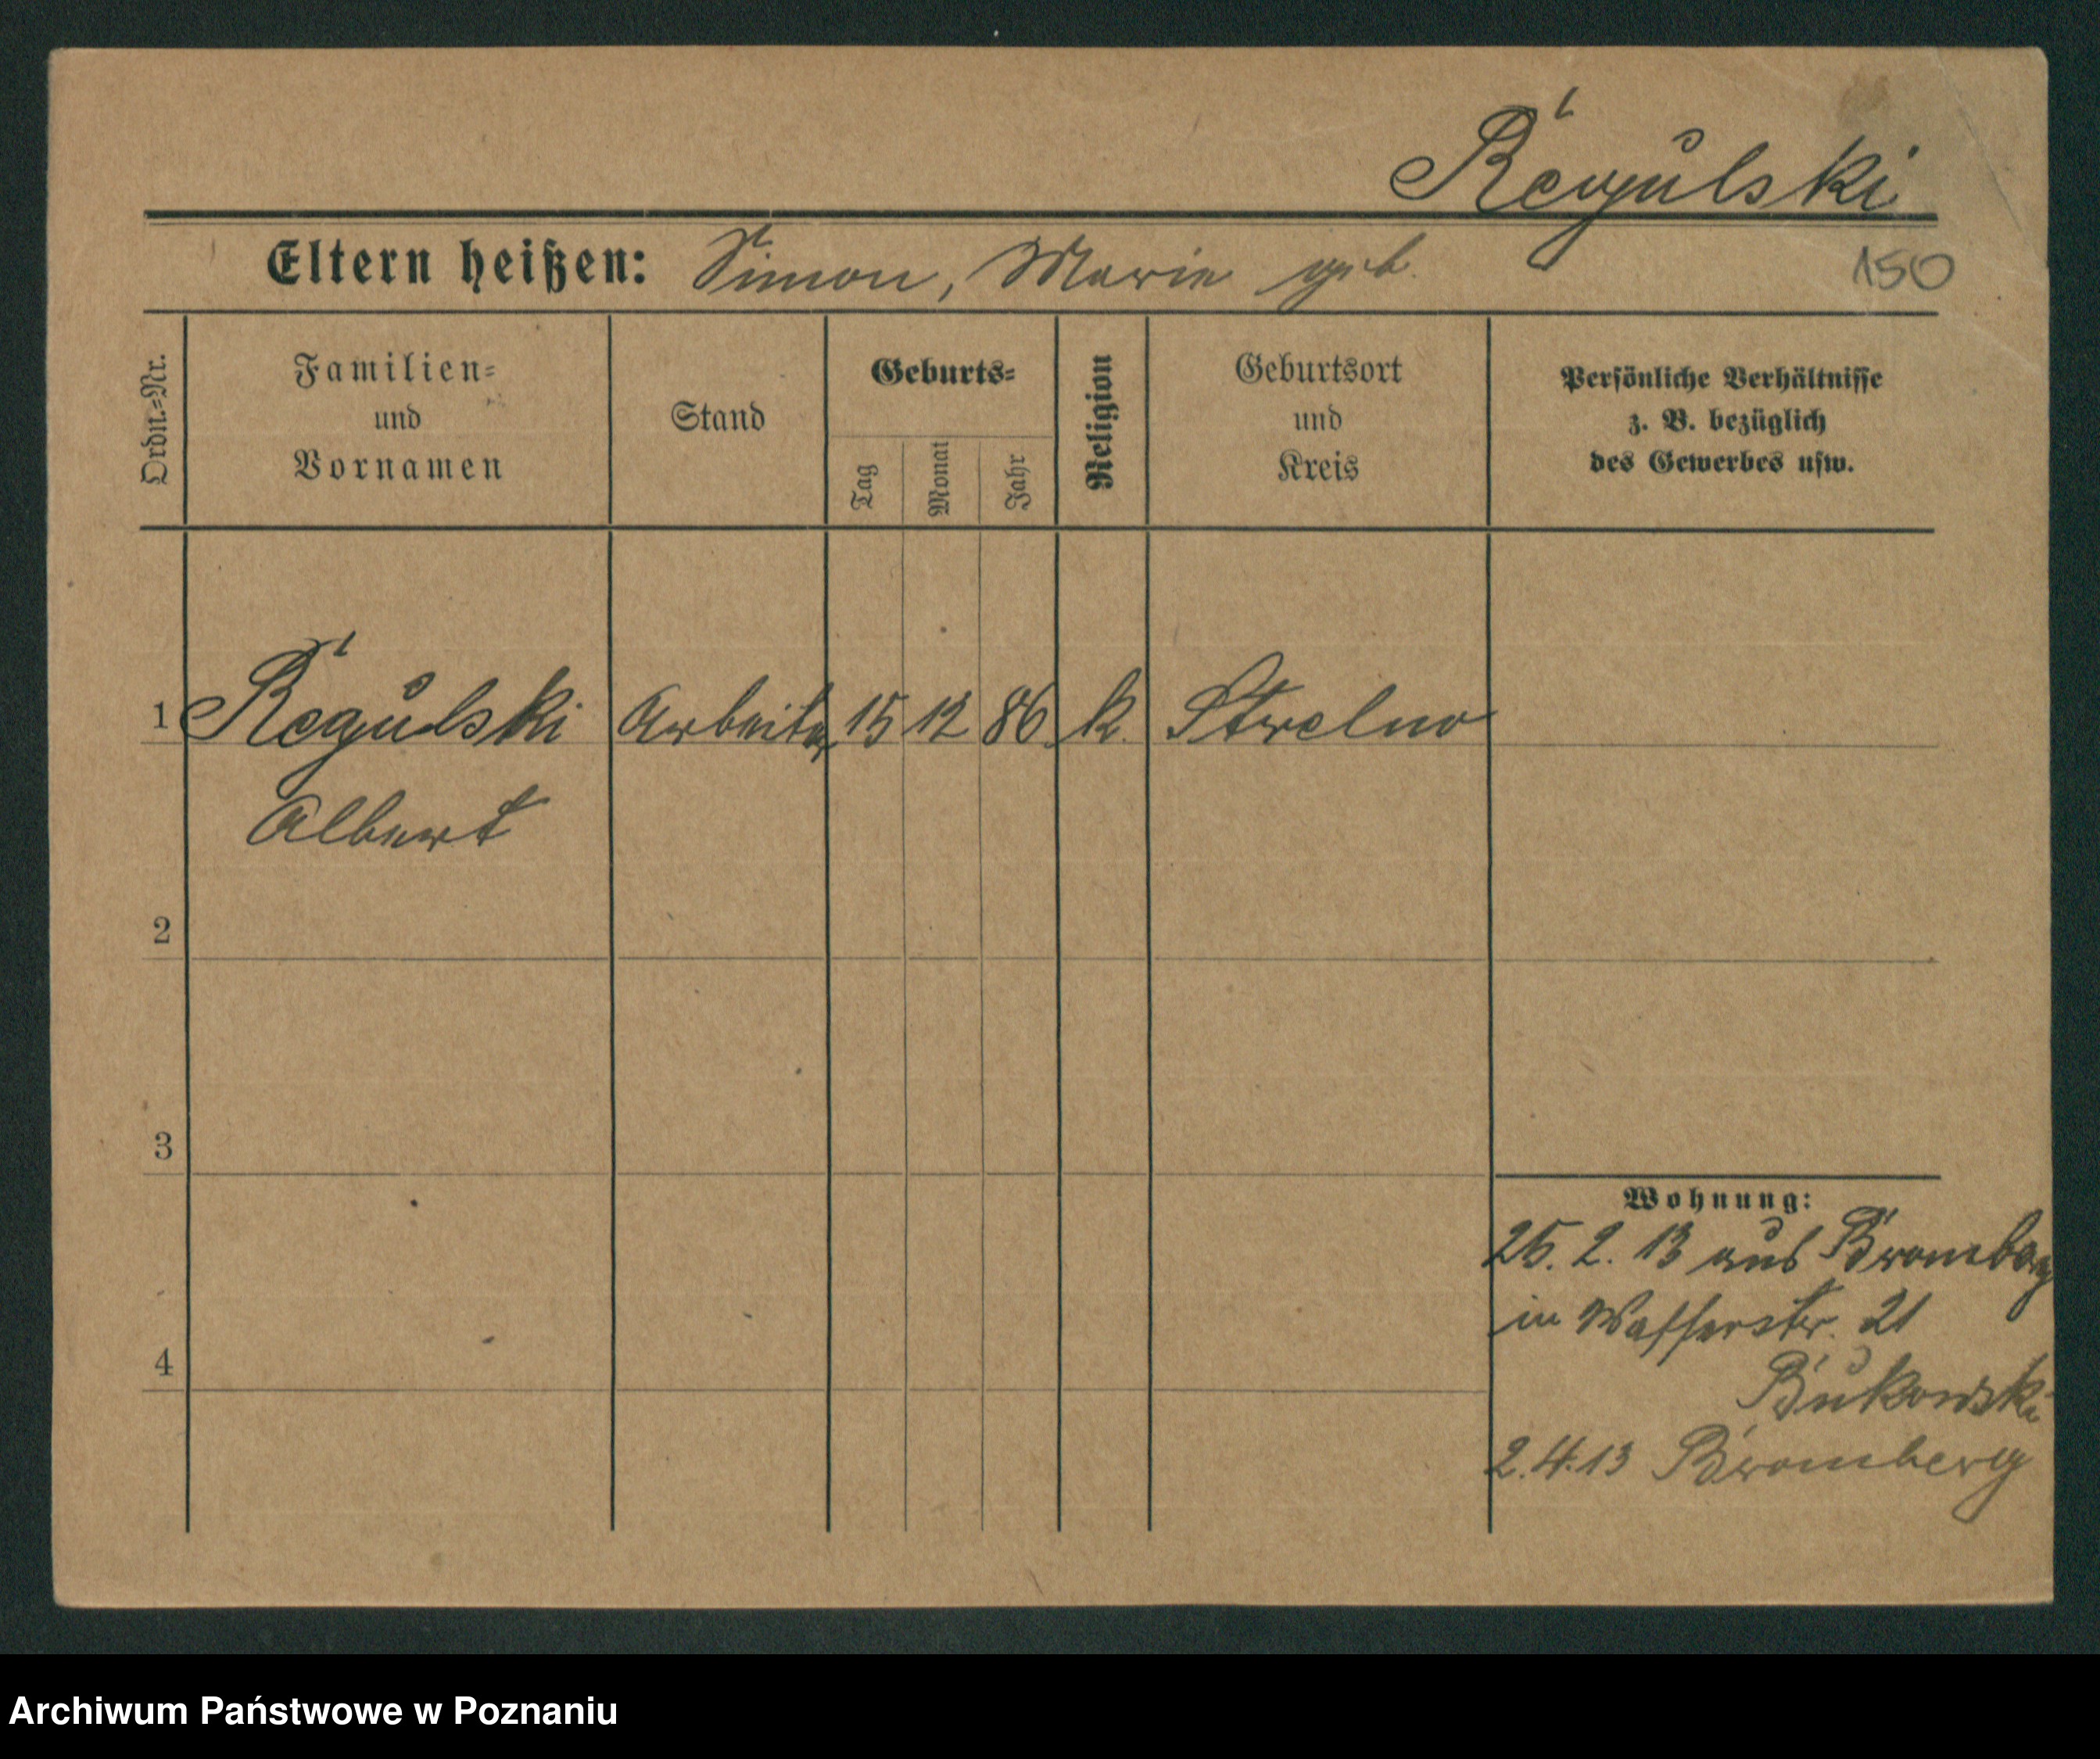 Regulski
Eltern heißen: Simon, Marie geb.
150
Ordn.-Nr.
Familien-
und
Vornamen
Stand
Geburts-
Tag
Monat
Jahr
Religion
Geburtsort
und
Kreis
Persönliche Verhältnisse
z. B. bezüglich
des Gewerbes usw.
1 Regulski Arbeiter 15 12 86 k. Strelno
Albert
2
3
4
Wohnung:
25. 2. 13 aus Bromberg
in Wasserstr. 21
Bukowski
2.4.13 Bromberg
Archiwum Państwowe w Poznaniu